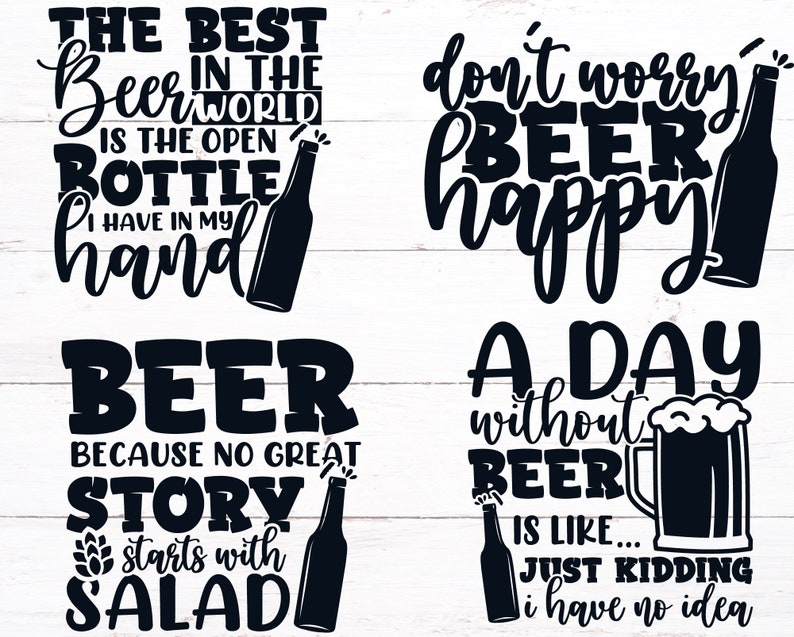 THE BEST
Beer IN THE
WORLD
IS THE OPEN
BOTTLE
I HAVE IN MY
hand
don't worry
BEER
happy
BEER
BECAUSE NO GREAT
STORY
starts with
SALAD
A DAY
without
BEER
IS LIKE...
JUST KIDDING
i have no idea